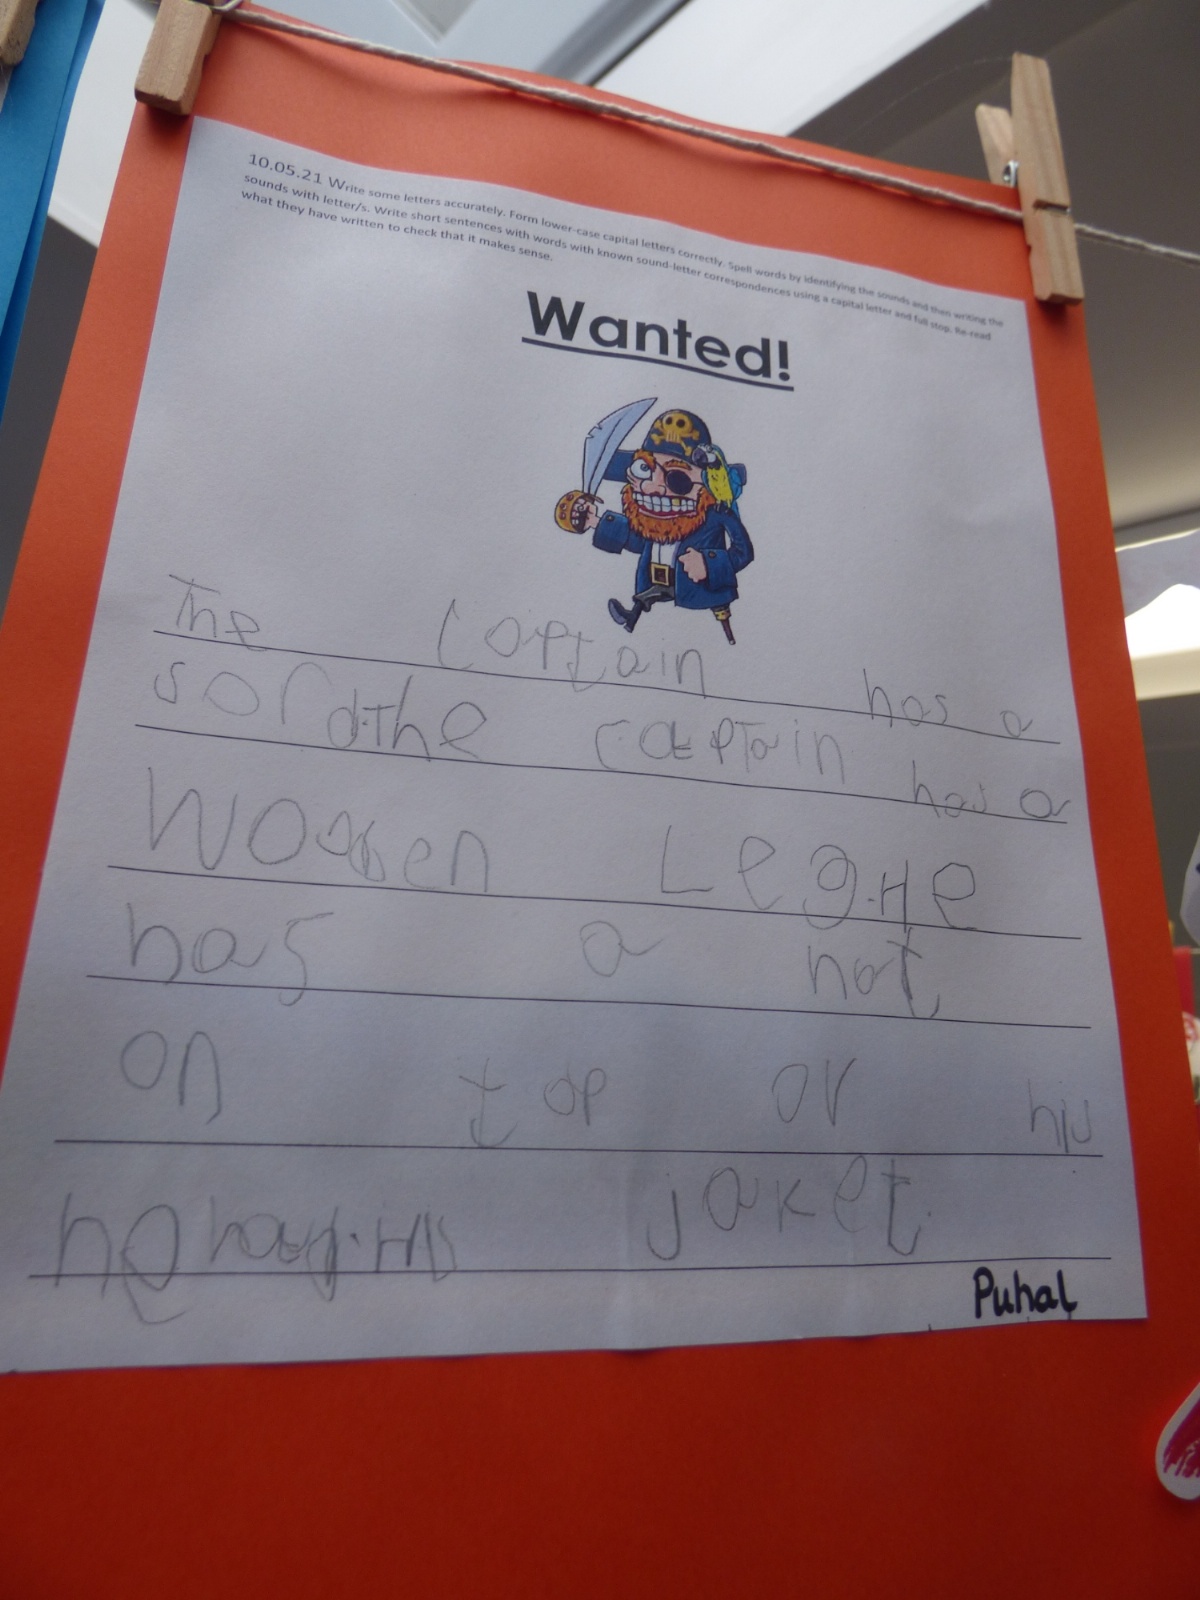 10.05.21 Write some letters accurately. Form lower-case capital letters correctly. Spell words by identifying the sounds and then writing the
sounds with letter/s. Write short sentences with words with known sound-letter correspondences using a capital letter and full stop. Re-read
what they have written to check that it makes sense.
Wanted!
The captain has a
sord.The captain has a
wooden Leg.He
has a hat
on top ov his
hed. His jaket.
Puhal